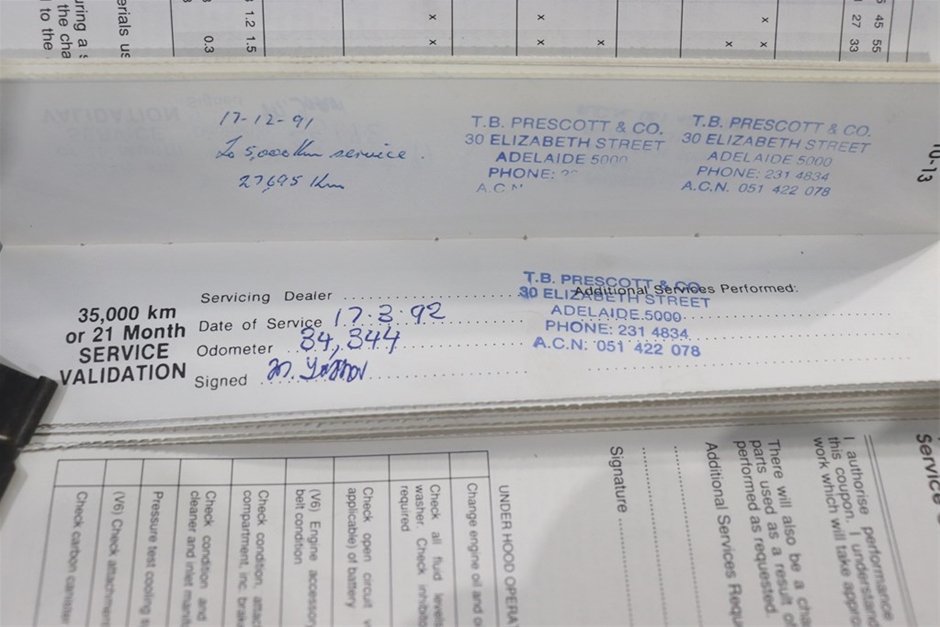 uring a s
the cha
to the
erials us
0.3
1.2 1.5
x x
x x
x
x
x x
45 55
27 33
17-12-91
5,000km service.
27,695 km
T.B. PRESCOTT & CO.
30 ELIZABETH STREET
ADELAIDE 5000
PHONE:
A.C.N
T.B. PRESCOTT & CO.
30 ELIZABETH STREET
ADELAIDE 5000
PHONE: 231 4834
A.C.N. 051 422 078
10-13
35,000 km
or 21 Month
SERVICE
VALIDATION
Servicing Dealer
Date of Service 17.3.92
Odometer 34,344
Signed
T.B. PRESCOTT & CO.
30 ELIZABETH STREET
ADELAIDE 5000
PHONE: 231 4834
A.C.N. 051 422 078
Additional Services Performed:
Service
I authorise performance
this coupon. I understand
work which will take appro
There will also be a cha
parts used as a result of
performed as requested.
Additional Services Requ
Signature
UNDER HOOD OPERA
Change engine oil and o
Check all fluid levels
washer. Check inhibito
required
Check open circuit v
applicable) of battery
(V6) Engine accessory
belt condition
Check condition, attac
compartment, inc. brak
Check condition and
cleaner and inlet manif
Pressure test cooling s
(V6) Check attachment
Check carbon canister